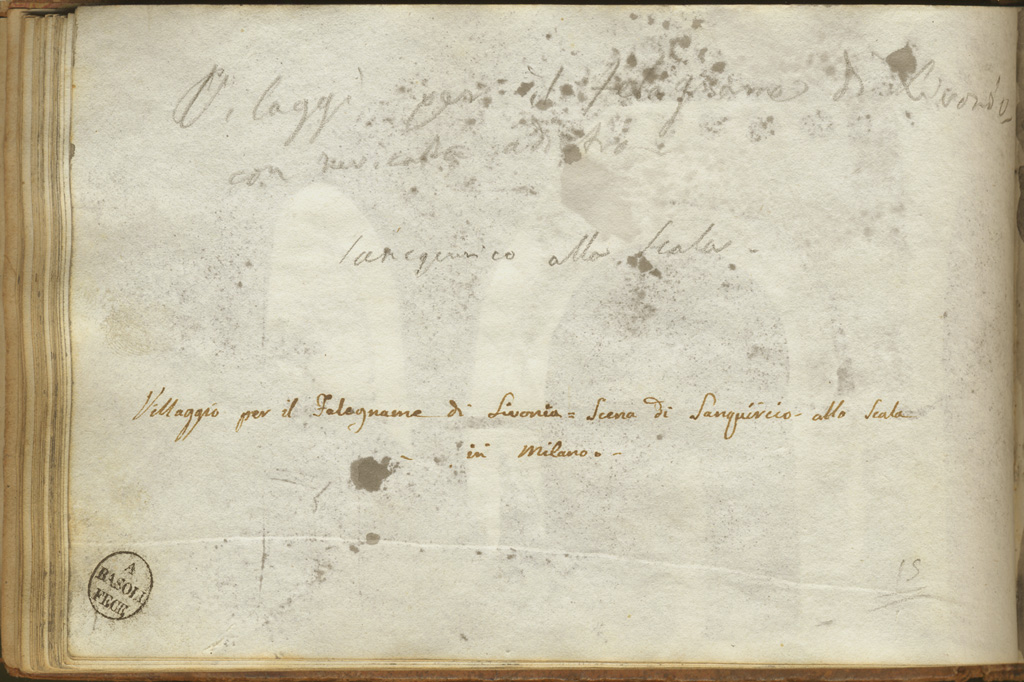 Vilaggi per il Falegname di Livonia
con nevicata
Sanquirico alla Scala -
Villaggio per il Falegname di Livonia = Scena di Sanquircio - alla Scala
in Milano. -
A
BASOLI
FECE
15